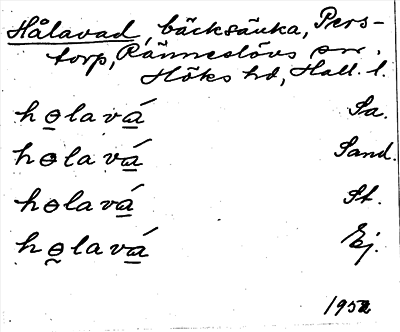 Hålavad, bäcksänka, Pers-
torp, Ränneslövs sn.
Höks hd, Hall. l.
hɵlavá Sa.
hɵlavá Sand.
hɵlavá St.
hɵlavá Ej.
1952